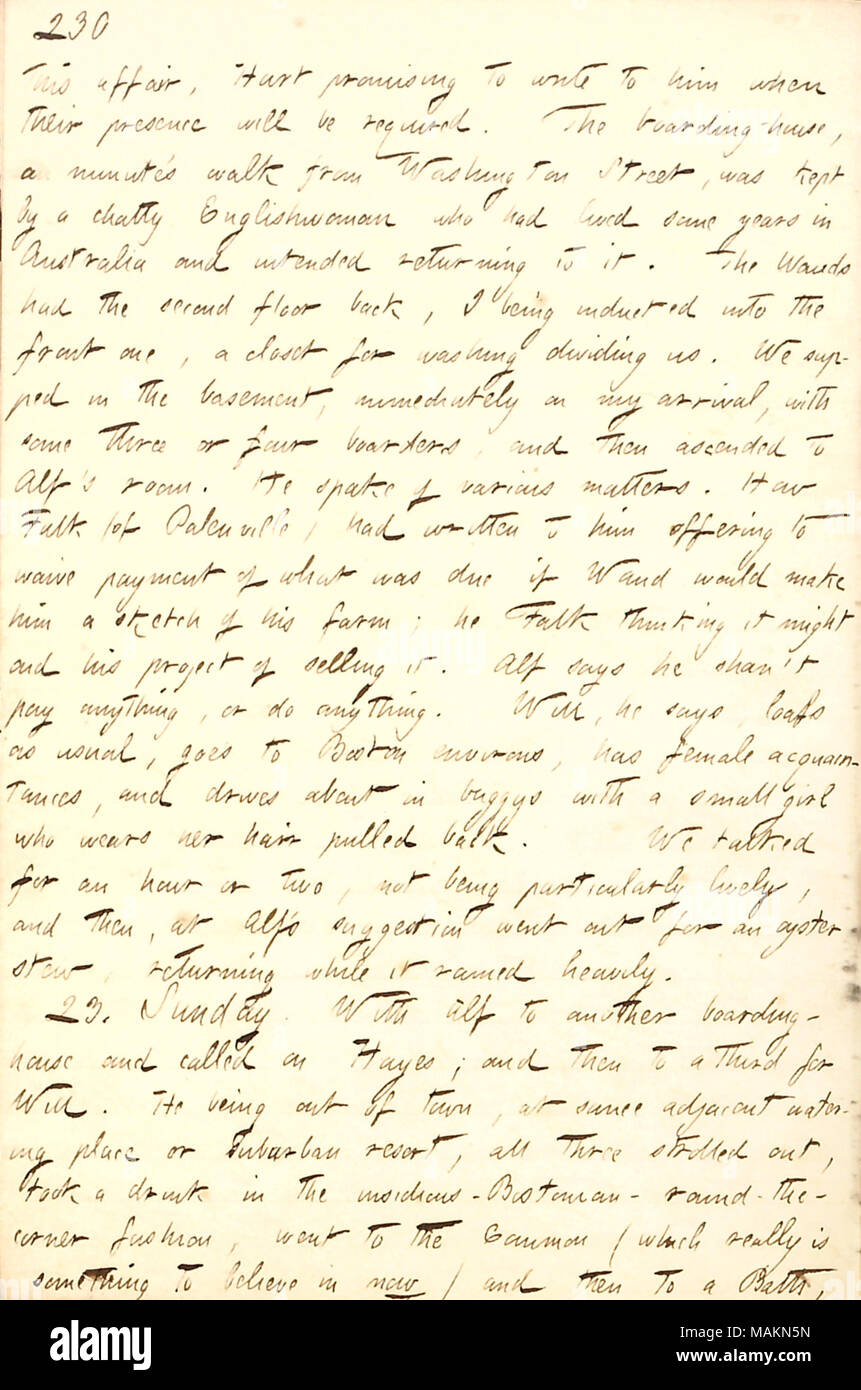 230
this affair, Hart promising to write to him when
their presence will be required. The boarding-house,
a minute's walk from Washington Street, was kept
by a chatty Englishwoman who had lived some years in
Australia and intended returning to it. The Wauds
had the second floor back, I being inducted into the
front one, a closet for washing dividing us. We sup-
ped in the basement, immediately on my arrival, with
some three or four boarders, and then ascended to
Alf's room. He spoke of various matters. How
Falk (of Palenville) had written to him offering to
waive payment of what was due if Waud would make
him a sketch of his farm; he Falk thinking it might
aid his project of selling it. Alf says he shan't
pay anything, or do anything. Will, he says, loafs
as usual, goes to Boston environs, has female acquain-
tances, and drives about in buggys with a small girl
who wears her hair pulled back. We talked
for an hour or two, not being particularly lively,
and then, at Alf's suggestion went out for an oyster
stew, returning while it rained heavily.
23. Sunday. With Alf to another boarding-
house and called on Hayes; and then to a third for
Will. He being out of town, at some adjacent water-
ing place or suburban resort, all three strolled out,
took a drink in the insidious-Bostonian-round-the-
corner fashion, went to the Common (which really is
something to believe in now) and then to a Bath,
alamy
Image ID: MAKN5N
www.alamy.com